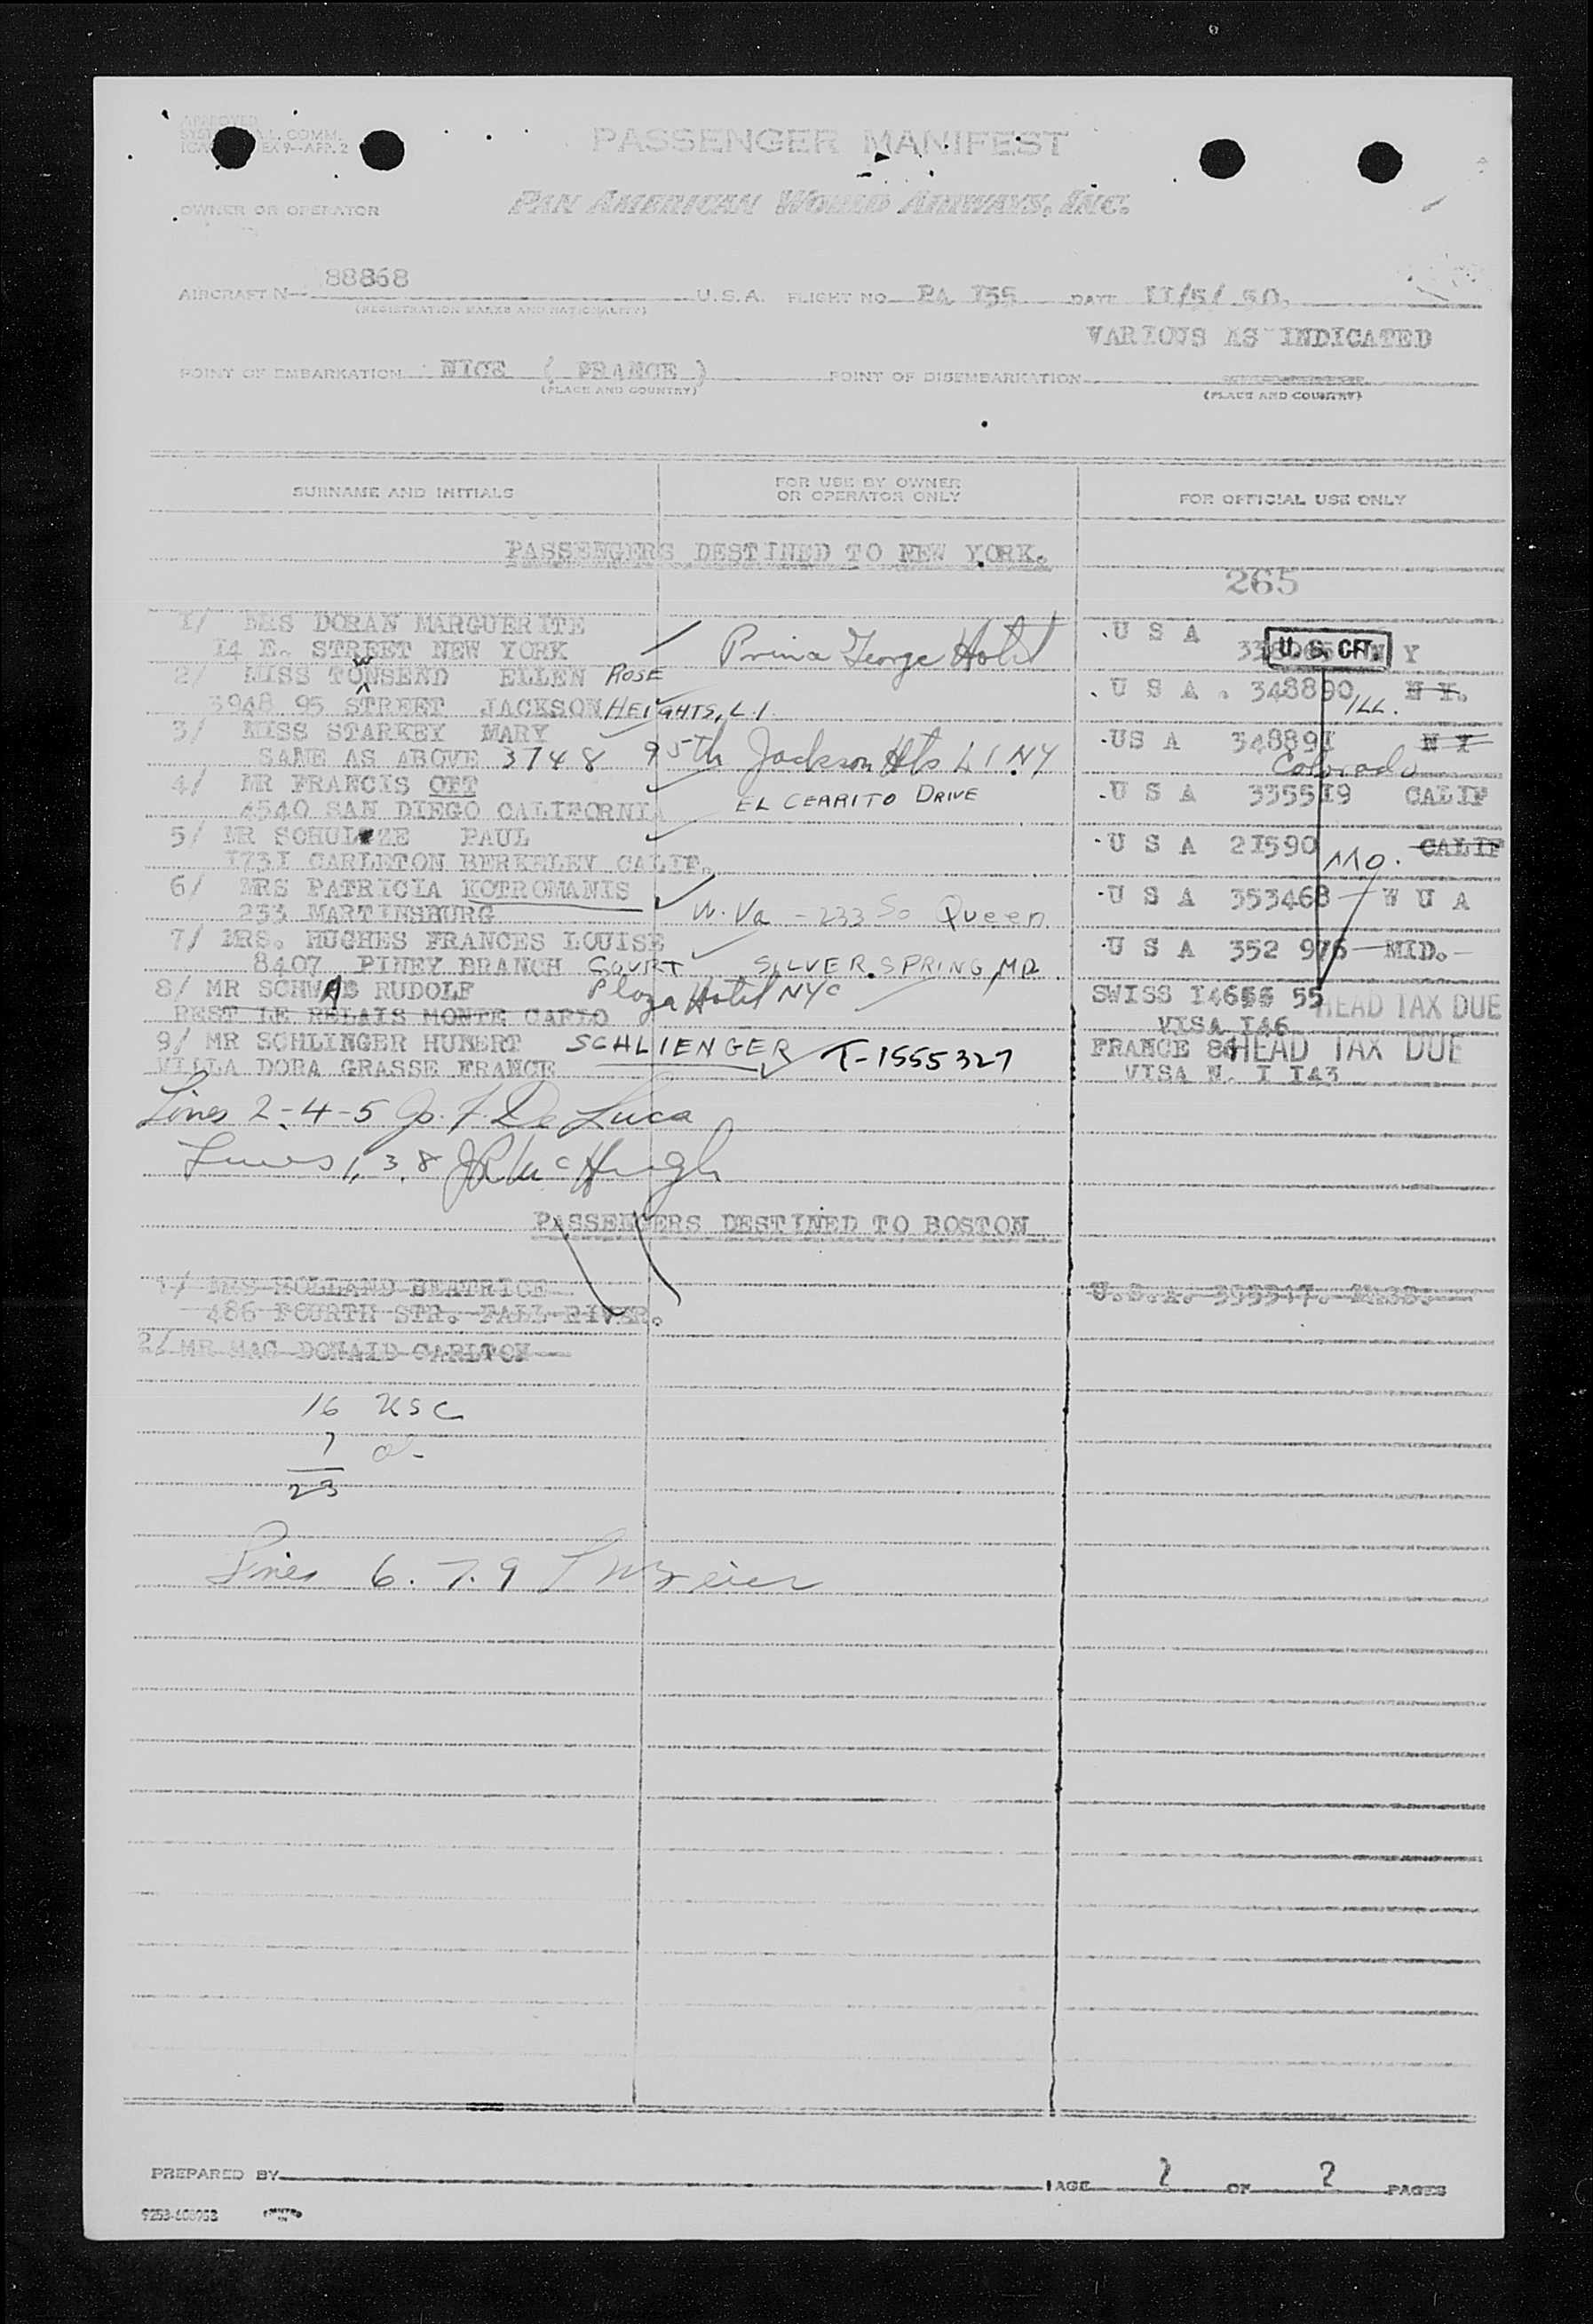 APPROVED
COMM.
9—APP. 2
PASSENGER MANIFEST
OWNER OR OPERATOR PAN AMERICAN WORLD AIRWAYS, INC.
AIRCRAFT N— 88868 U.S.A. FLIGHT NO. PA 155 DATE 11/5/ 50.
(REGISTRATION MARKS AND NATIONALITY)
VARIOUS AS INDICATED
POINT OF EMBARKATION NICE ( FRANCE ) POINT OF DISEMBARKATION
(PLACE AND COUNTRY) (PLACE AND COUNTRY)
SURNAME AND INITIALS
FOR USE BY OWNER
OR OPERATOR ONLY
FOR OFFICIAL USE ONLY
PASSENGERS DESTINED TO NEW YORK.
265
1/ MRS DORAN MARGUERITE .U S A
14 E. STREET NEW YORK Prince George Hotel U. S. CIT. N Y
2/ MISS TOWNSEND ELLEN ROSE .U S A . 348890 ILL. N Y.
3948 95 STREET JACKSON HEIGHTS, L.I
3/ MISS STARKEY MARY .US A 348891 N Y
SAME AS ABOVE 3748 95th Jackson Hts L I NY Colorado
4/ MR FRANCIS OFT .U S A 335519 CALIF
4540 SAN DIEGO CALIFORNIA EL CERRITO DRIVE
5/ MR SCHULZE PAUL .U S A 21590 MO. CALIF
1731 CARLETON BERKELEY CALIF.
6/ MRS PATRICIA KOTROMANIS .U S A 353468 W U A
233 MARTINSBURG W. Va - 233 So Queen
7/ MRS. HUGHES FRANCES LOUISE .U S A 352 976 — MID.—
8407 PINEY BRANCH COURT SILVER SPRING, MD
8/ MR SCHWAB RUDOLF Plaza Hotel NYC SWISS 14655 55 HEAD TAX DUE
REST LE RELAIS MONTE CARLO VISA I46
9/ MR SCHLINGER HUBERT SCHLIENGER T-1555327 FRANCE 84 HEAD TAX DUE
VILLA DORA GRASSE FRANCE VISA N. I I43
Lines 2-4-5 Jo. F. De Luca
Lines 1, 3, 8 JR McHugh
PASSENGERS DESTINED TO BOSTON
1/ MRS HOLLAND BEATRICE U.S.A. 355347. MASS.
486 FOURTH STR. FALL RIVER.
2/ MR MAC DONALD CARLTON
16 USC
7 a-
23
Lines 6. 7. 9
PREPARED BY PAGE 2 OF 2 PAGES